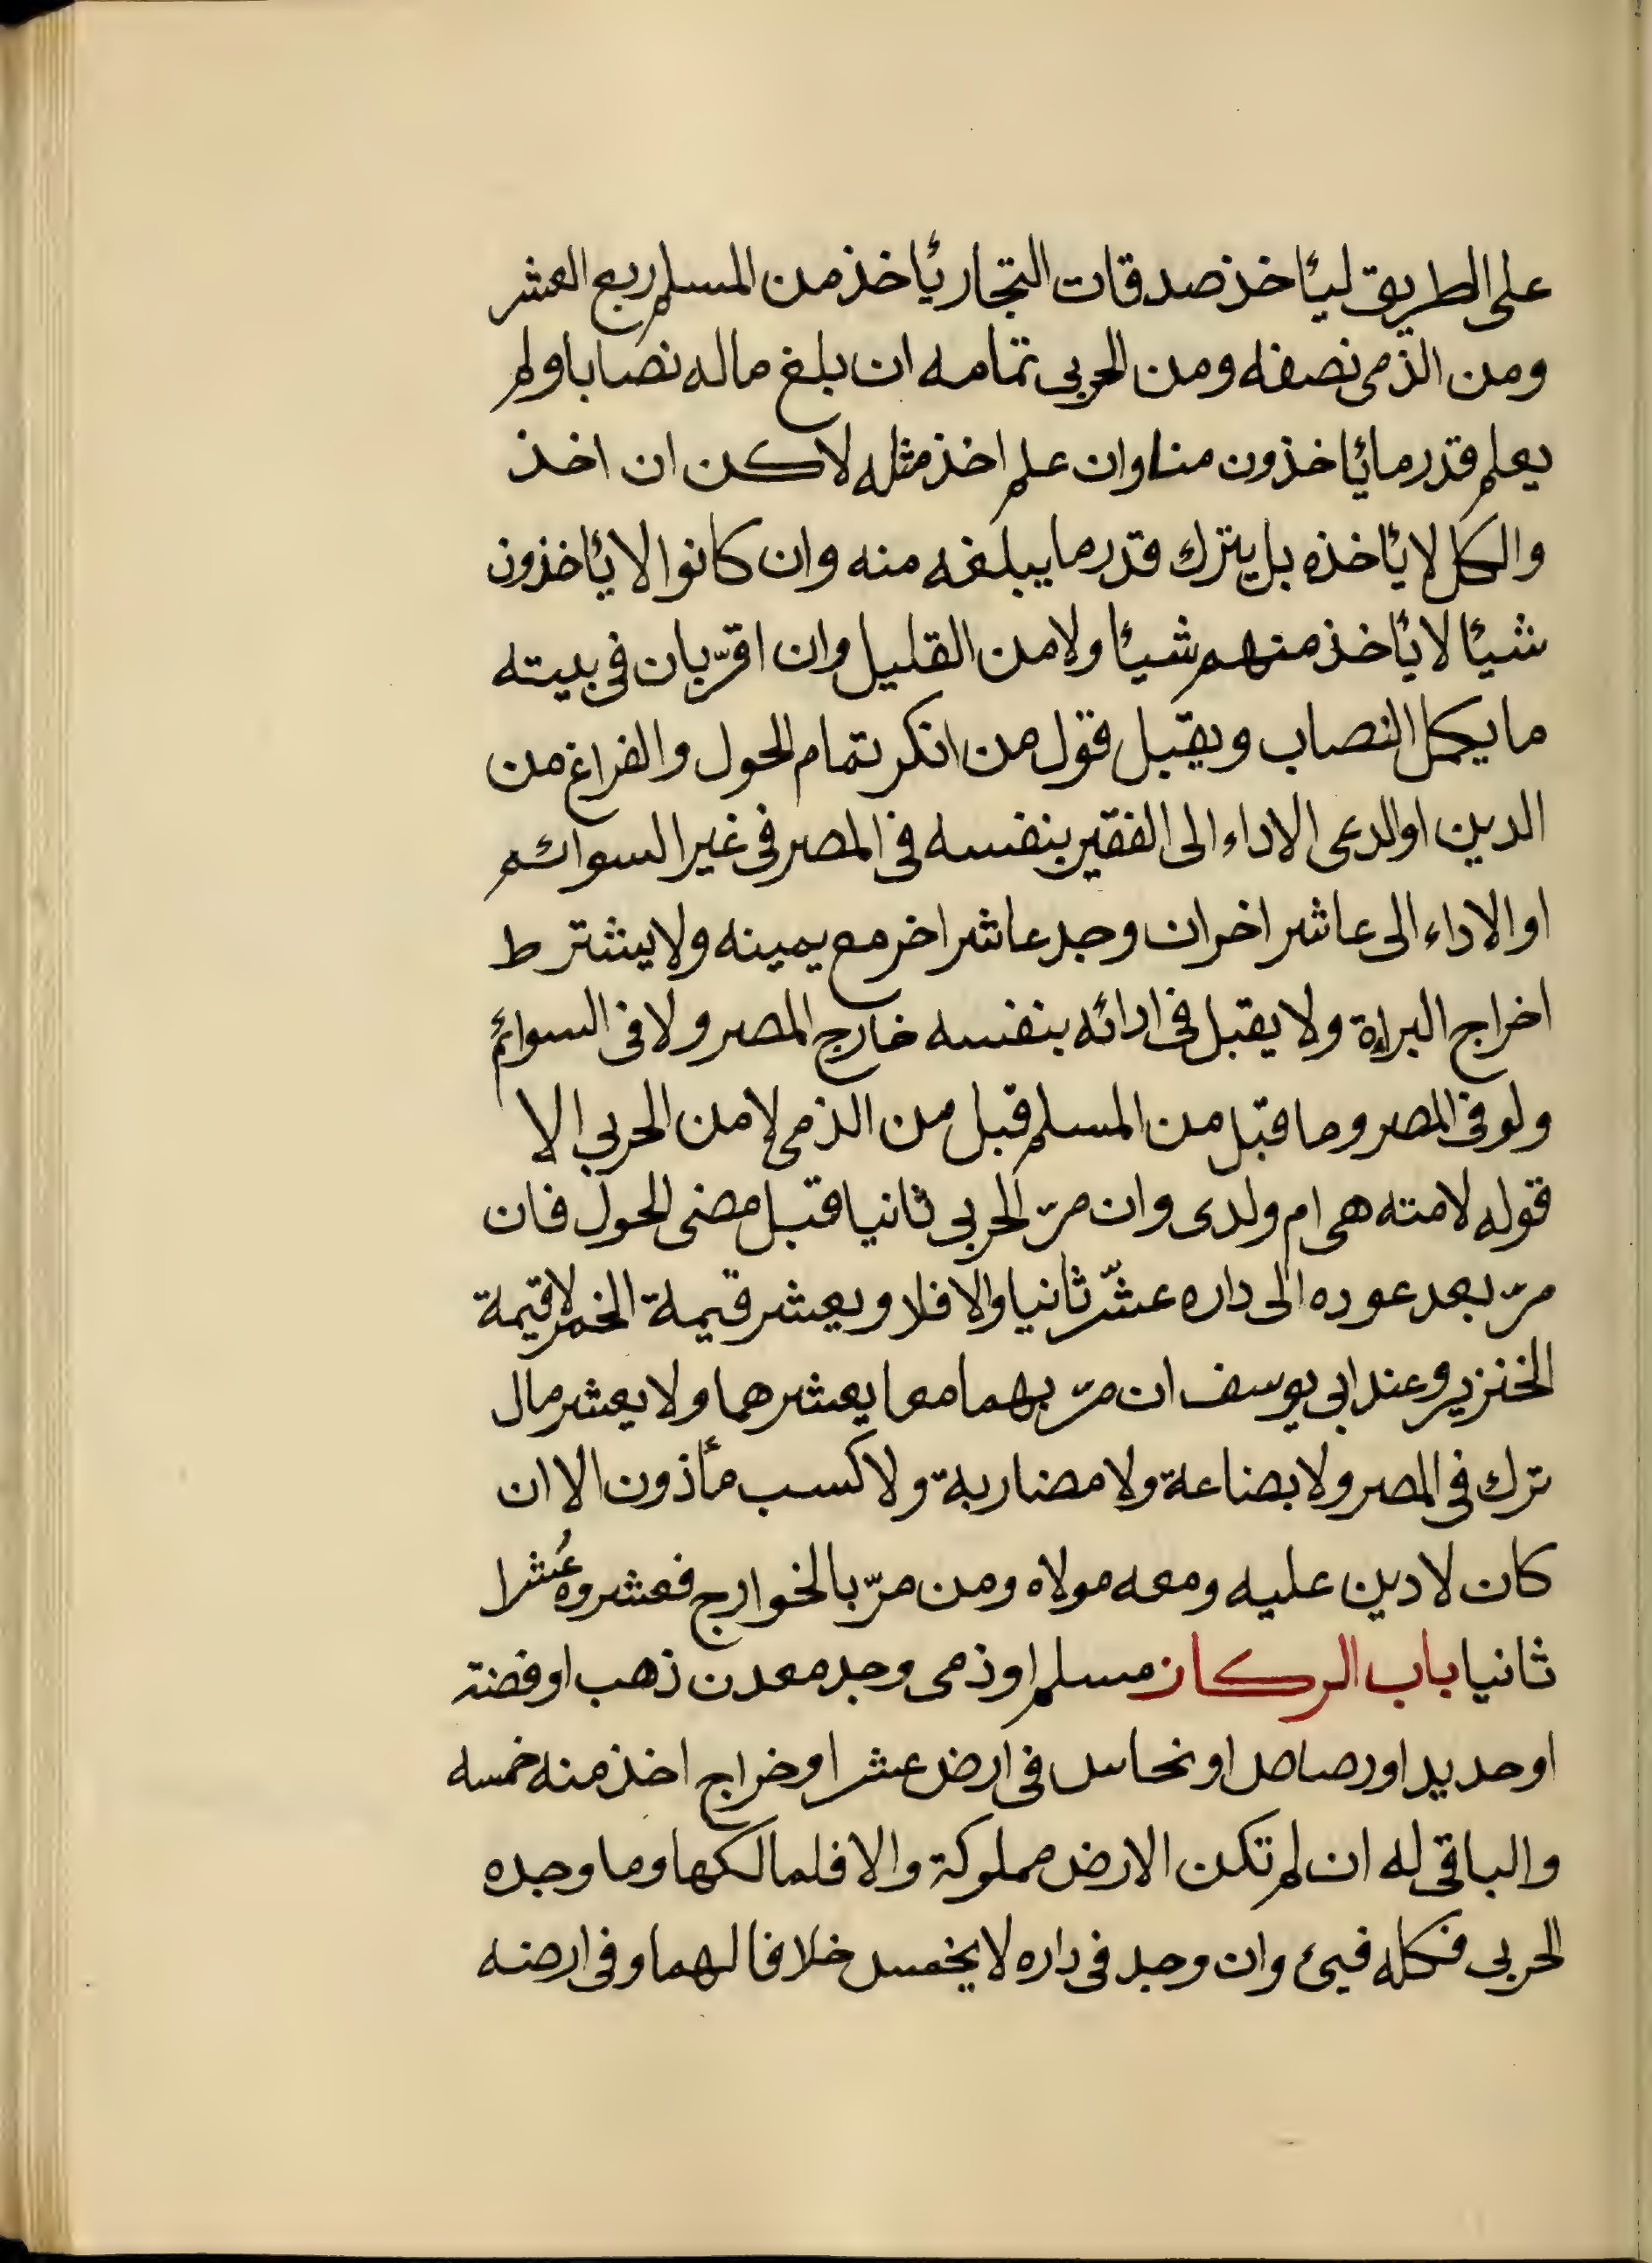 على الطريق ليئاخذ صدقات التجار يئاخذ من المسلم ربع العشر
ومن الذمى نصفه ومن الحربى تمامه ان بلغ ماله نصابا ولم
يعلم قدر ما يئاخذون منا وان علم اخذ مثله لاكن ان اخذ
والكل لا يئاخذه بل يترك قدر ما يبلغه منه وان كانوا لا يئاخذون
شيئا لا يئاخذ منهم شيئا ولا من القليل وان اقرّ بان فى بيته
ما يكمل النصاب ويقبل قول من انكر تمام الحول والفراغ من
الدين او الدعى الاداء الى الفقير بنفسه فى المصر فى غير السوائم
او الاداء الى عاشر اخر ان وجد عاشر اخر مع يمينه ولا يشترط
اخراج البراءة ولا يقبل فى ادائه بنفسه خارج المصر ولا فى السوائم
ولو فى المصر وما قبل من المسلم قبل من الذمى لا من الحربى الا
قوله لامته هى ام ولدى وان مرّ الحربى ثانيا قبل مضى الحول فان
مرّ بعد عوده الى داره عشّر ثانيا والا فلا ويعشر قيمة الخمر لا قيمة
الخنزير وعند ابى يوسف ان مرّ بهما معا يعشرهما ولا يعشر مال
ترك فى المصر ولا بضاعة ولا مضاربة ولا كسب مأذون الا ان
كان لا دين عليه ومعه مولاه ومن مرّ بالخوارج فعشروه عُشرا
ثانيا باب الركاز مسلم او ذمى وجد معدن ذهب او فضة
او حديد او رصاص او نحاس فى ارض عشر او خراج اخذ منه خمسه
والباقى له ان لم تكن الارض مملوكة والا فلمالكها وما وجده
الحربى فكله فيئ وان وجد فى داره لا يخمس خلافا لهما وفى ارضه